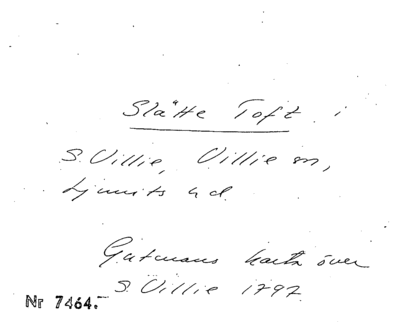 Slätte Toft i
S. Villie, Villie sn,
Ljunits hd.
Gutmans karta över
S. Villie 1797
Nr 7464.-